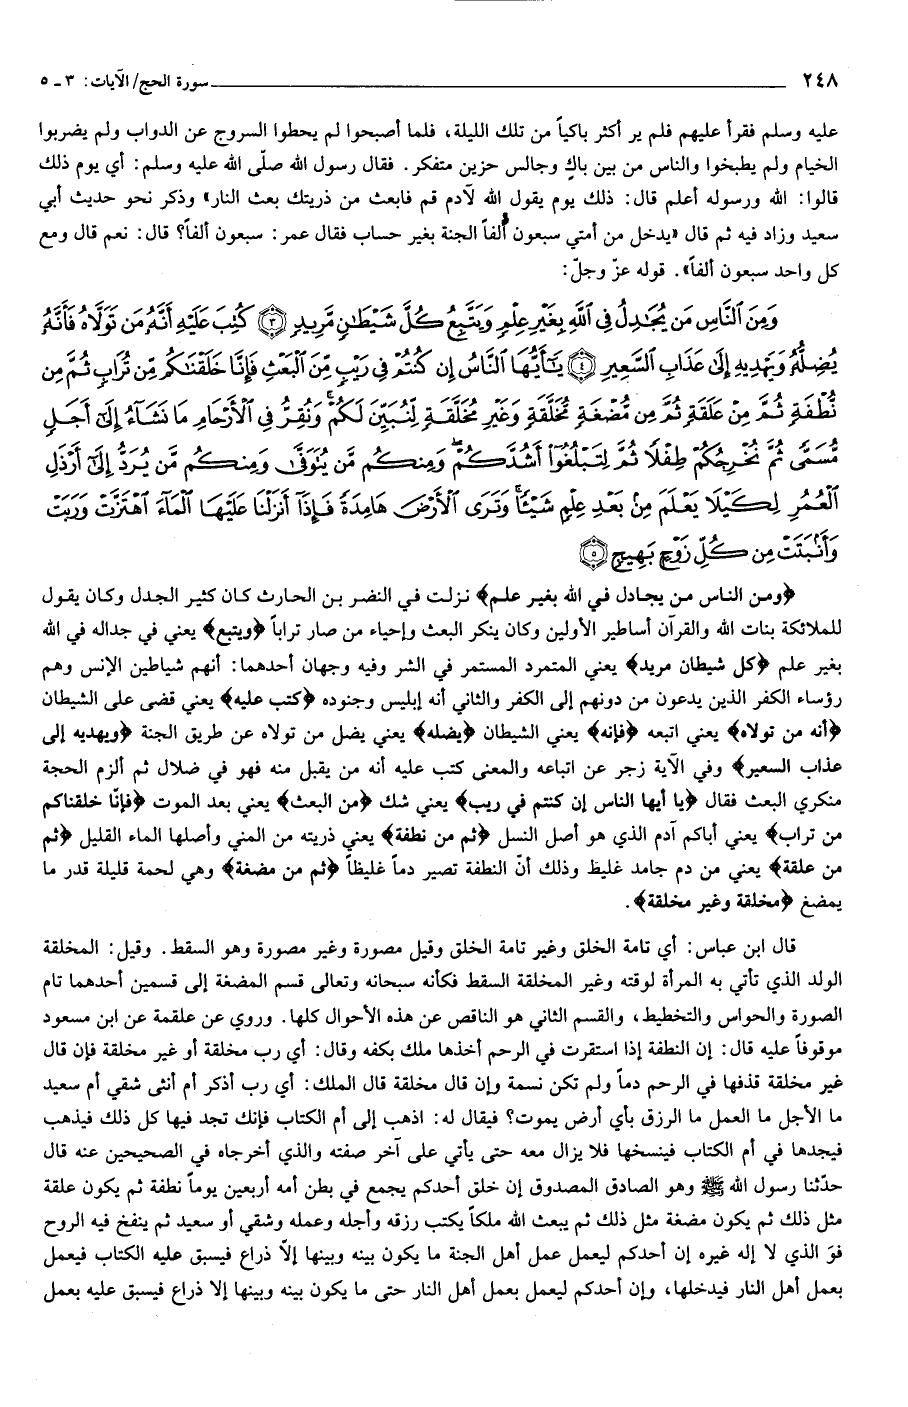 ٢٤٨ سورة الحج/ الآيات: ٣ ـ ٥
عليه وسلم فقرأ عليهم فلم ير أكثر باكياً من تلك الليلة، فلما أصبحوا لم يحطوا السروج عن الدواب ولم يضربوا
الخيام ولم يطبخوا والناس من بين باكٍ وجالس حزين متفكر. فقال رسول الله صلّى الله عليه وسلم: أي يوم ذلك
قالوا: الله ورسوله أعلم قال: ذلك يوم يقول الله لآدم قم فابعث من ذريتك بعث النار» وذكر نحو حديث أبي
سعيد وزاد فيه ثم قال «يدخل من أمتي سبعون ألفاً الجنة بغير حساب فقال عمر: سبعون ألفاً؟ قال: نعم قال ومع
كل واحد سبعون ألفاً». قوله عزّ وجلّ:
وَمِنَ ٱلنَّاسِ مَن يُجَٰدِلُ فِى ٱللَّهِ بِغَيْرِ عِلْمٍ وَيَتَّبِعُ كُلَّ شَيْطَٰنٍ مَّرِيدٍ ٣ كُتِبَ عَلَيْهِ أَنَّهُۥ مَن تَوَلَّاهُ فَأَنَّهُۥ
يُضِلُّهُۥ وَيَهْدِيهِ إِلَىٰ عَذَابِ ٱلسَّعِيرِ ٤ يَٰٓأَيُّهَا ٱلنَّاسُ إِن كُنتُمْ فِى رَيْبٍ مِّنَ ٱلْبَعْثِ فَإِنَّا خَلَقْنَٰكُم مِّن تُرَابٍ ثُمَّ مِن
نُّطْفَةٍ ثُمَّ مِنْ عَلَقَةٍ ثُمَّ مِن مُّضْغَةٍ مُّخَلَّقَةٍ وَغَيْرِ مُخَلَّقَةٍ لِّنُبَيِّنَ لَكُمْ ۚ وَنُقِرُّ فِى ٱلْأَرْحَامِ مَا نَشَآءُ إِلَىٰٓ أَجَلٍ
مُّسَمًّى ثُمَّ نُخْرِجُكُمْ طِفْلًا ثُمَّ لِتَبْلُغُوٓا۟ أَشُدَّكُمْ ۖ وَمِنكُم مَّن يُتَوَفَّىٰ وَمِنكُم مَّن يُرَدُّ إِلَىٰٓ أَرْذَلِ
ٱلْعُمُرِ لِكَيْلَا يَعْلَمَ مِنۢ بَعْدِ عِلْمٍ شَيْـًٔا ۚ وَتَرَى ٱلْأَرْضَ هَامِدَةً فَإِذَآ أَنزَلْنَا عَلَيْهَا ٱلْمَآءَ ٱهْتَزَّتْ وَرَبَتْ
وَأَنۢبَتَتْ مِن كُلِّ زَوْجٍۭ بَهِيجٍ ٥
﴿ومن الناس من يجادل في الله بغير علم﴾ نزلت في النضر بن الحارث كان كثير الجدل وكان يقول
للملائكة بنات الله والقرآن أساطير الأولين وكان ينكر البعث وإحياء من صار تراباً ﴿ويتبع﴾ يعني في جداله في الله
بغير علم ﴿كل شيطان مريد﴾ يعني المتمرد المستمر في الشر وفيه وجهان أحدهما: أنهم شياطين الإنس وهم
رؤساء الكفر الذين يدعون من دونهم إلى الكفر والثاني أنه إبليس وجنوده ﴿كتب عليه﴾ يعني قضى على الشيطان
﴿أنه من تولاه﴾ يعني اتبعه ﴿فإنه﴾ يعني الشيطان ﴿يضله﴾ يعني يضل من تولاه عن طريق الجنة ﴿ويهديه إلى
عذاب السعير﴾ وفي الآية زجر عن اتباعه والمعنى كتب عليه أنه من يقبل منه فهو في ضلال ثم ألزم الحجة
منكري البعث فقال ﴿يا أيها الناس إن كنتم في ريب﴾ يعني شك ﴿من البعث﴾ يعني بعد الموت ﴿فإنّا خلقناكم
من تراب﴾ يعني أباكم آدم الذي هو أصل النسل ﴿ثم من نطفة﴾ يعني ذريته من المني وأصلها الماء القليل ﴿ثم
من علقة﴾ يعني من دم جامد غليظ وذلك أنّ النطفة تصير دماً غليظاً ﴿ثم من مضغة﴾ وهي لحمة قليلة قدر ما
يمضغ ﴿مخلقة وغير مخلقة﴾.
قال ابن عباس: أي تامة الخلق وغير تامة الخلق وقيل مصورة وغير مصورة وهو السقط. وقيل: المخلقة
الولد الذي تأتي به المرأة لوقته وغير المخلقة السقط فكأنه سبحانه وتعالى قسم المضغة إلى قسمين أحدهما تام
الصورة والحواس والتخطيط، والقسم الثاني هو الناقص عن هذه الأحوال كلها. وروي عن علقمة عن ابن مسعود
موقوفاً عليه قال: إن النطفة إذا استقرت في الرحم أخذها ملك بكفه وقال: أي رب مخلقة أو غير مخلقة فإن قال
غير مخلقة قذفها في الرحم دماً ولم تكن نسمة وإن قال مخلقة قال الملك: أي رب أذكر أم أنثى شقي أم سعيد
ما الأجل ما العمل ما الرزق بأي أرض يموت؟ فيقال له: اذهب إلى أم الكتاب فإنك تجد فيها كل ذلك فيذهب
فيجدها في أم الكتاب فينسخها فلا يزال معه حتى يأتي على آخر صفته والذي أخرجاه في الصحيحين عنه قال
حدّثنا رسول الله ﷺ وهو الصادق المصدوق إن خلق أحدكم يجمع في بطن أمه أربعين يوماً نطفة ثم يكون علقة
مثل ذلك ثم يكون مضغة مثل ذلك ثم يبعث الله ملكاً يكتب رزقه وأجله وعمله وشقي أو سعيد ثم ينفخ فيه الروح
فوَ الذي لا إله غيره إن أحدكم ليعمل عمل أهل الجنة ما يكون بينه وبينها إلاّ ذراع فيسبق عليه الكتاب فيعمل
بعمل أهل النار فيدخلها، وإن أحدكم ليعمل بعمل أهل النار حتى ما يكون بينه وبينها إلا ذراع فيسبق عليه بعمل